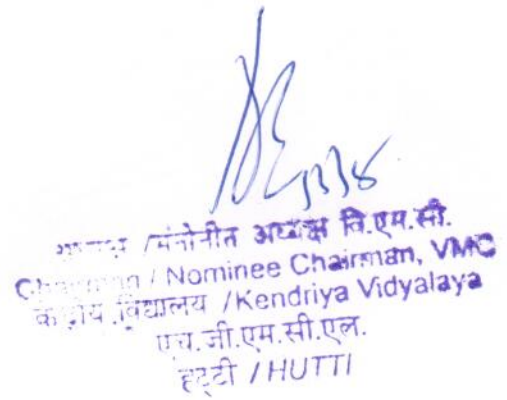 अध्यक्ष /मनोनीत अध्यक्ष वि.एम.सी.
Chairman / Nominee Chairman, VMC
केन्द्रीय विद्यालय /Kendriya Vidyalaya
एच.जी.एम.सी.एल.
हट्टी / HUTTI